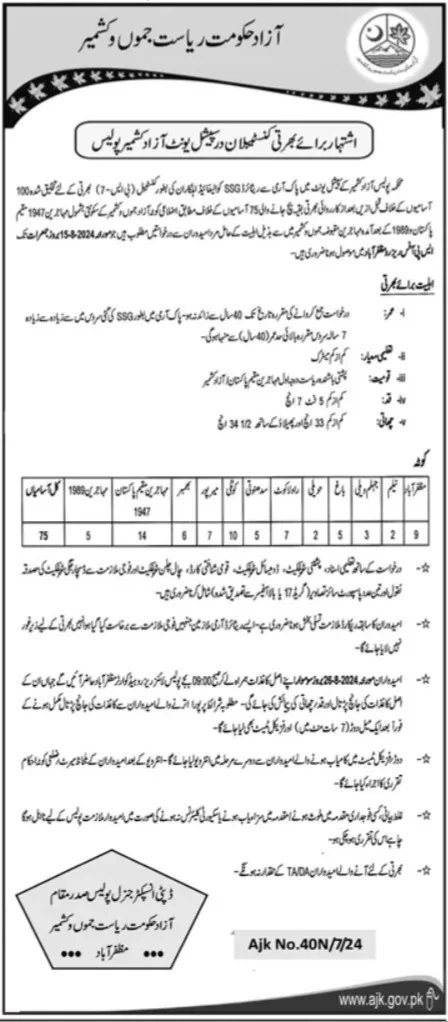 آزاد حکومت ریاست جموں و کشمیر
اشتہار برائے بھرتی کنسٹیبلان در سپیشل یونٹ آزاد کشمیر پولیس
محکمہ پولیس آزاد کشمیر کے سپیشل یونٹ میں پاک آرمی سے ریٹائرڈ SSG کوالیفائیڈ اہلکاران کی بطور کنسٹیبل (بی ایس-7) بھرتی کے لئے تخلیق شدہ 100
آسامیوں کے خلاف قبل ازیں بعد از کارروائی بھرتی بقیہ بچ جانے والی 75 آسامیوں کے خلاف مطابق اضلاعی کوٹہ آزاد جموں و کشمیر کے سکونتی بشمول مہاجرین 1947 مقیم
پاکستان و 1989 کے بعد آمدہ مہاجرین مقبوضہ جموں و کشمیر میں سے بذیل اہلیت کے حامل مرد امیدواران سے درخواستیں مطلوب ہیں جو مورخہ 15-8-2024 بروز جمعرات تک
ایس پی آفس ریزرو مظفرآباد میں موصول ہونا ضروری ہیں۔
اہلیت برائے بھرتی
i- عمر: درخواست جمع کروانے کی مقررہ تاریخ تک 40 سال سے زائد نہ ہو۔ پاک آرمی میں بطور SSG کی گئی سروس میں سے زیادہ سے زیادہ
7 سالہ سروس مقررہ بالائی حد عمر (40 سال) سے منہا ہوگی۔
ii- تعلیمی معیار: کم از کم میٹرک
iii- قومیت: پشتنی باشندہ ریاست درجہ اول مہاجرین مقیم پاکستان / آزاد کشمیر
iv- قد: کم از کم 5 فٹ 7 انچ
v- چھاتی: کم از کم 33 انچ اور پھیلاؤ کے ساتھ 34 1/2 انچ
کوٹہ
مظفرآباد نیلم جہلم ویلی باغ حویلی راولاکوٹ سدھنوتی کوٹلی میرپور بھمبر مہاجرین مقیم پاکستان 1947 مہاجرین 1989 کل آسامیاں
9 2 3 5 2 7 5 10 7 6 14 5 75
☆- درخواست کے ساتھ تعلیمی اسناد، پشتنی سرٹیفکیٹ، ڈومیسائل سرٹیفکیٹ، قومی شناختی کارڈ، چال چلن سرٹیفکیٹ اور فوجی ملازمت سے ڈسچارج سرٹیفکیٹ کی مصدقہ
نقول اور تین عدد پاسپورٹ سائز تصاویر (گریڈ 17 یا بالا آفیسر سے تصدیق شدہ) شامل کرنا ضروری ہیں۔
☆- امیدواران کا سابقہ ریکارڈ ملازمت تسلی بخش ہونا ضروری ہے۔ ایسے ریٹائرڈ آرمی ملازمین جنہیں فوجی ملازمت سے برخاست کیا گیا ہو انہیں بھرتی کے لیے زیر غور
نہیں لایا جائے گا۔
☆- امیدواران مورخہ 26-8-2024 بروز سوموار اپنے اصل کاغذات ہمراہ لے کر صبح 09:00 بجے پولیس لائنز ریزرو ہیڈ کوارٹرز مظفرآباد حاضر آئیں گے جہاں ان کے
اصل کاغذات کی جانچ پڑتال اور قد و چھاتی کی پیمائش کی جائے گی۔ مطلوبہ شرائط پر پورا اترنے والے امیدواران سے کاغذات کی جانچ پڑتال مکمل ہونے کے
فوراً بعد ایک میل دوڑ (7 سات منٹ میں) اور فزیکل ٹیسٹ بھی لیا جائے گا۔
☆- دوڑ و فزیکل ٹیسٹ میں کامیاب ہونے والے امیدواران سے دوسرے مرحلہ میں انٹرویو لیا جائے گا۔ انٹرویو کے بعد امیدواران کے بلحاظ میرٹ و ضلعی کوٹہ احکام
تقرری کا اجراء کیا جائے گا۔
☆- غلط بیانی، کسی فوجداری مقدمہ میں ملوث ہونے / مقدمہ میں سزایاب ہونے یا سیکیورٹی کلیئرنس نہ ہونے کی صورت میں امیدوار ملازمت پولیس کے لیے نااہل ہوگا
چاہے اس کی تقرری ہو چکی ہو۔
☆- بھرتی کے لئے آنے والے امیدواران TA/DA کے حقدار نہ ہونگے۔
ڈپٹی انسپکٹر جنرل پولیس صدر مقام
آزاد حکومت ریاست جموں و کشمیر
••• مظفرآباد •••
Ajk No.40N/7/24
www.ajk.gov.pk